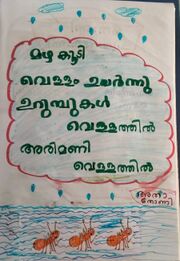 മഴ കൂടി
വെള്ളം ഉയർന്നു
ഉറുമ്പുകൾ
വെള്ളത്തിൽ
അരിമണി
വെള്ളത്തിൽ
തോണി